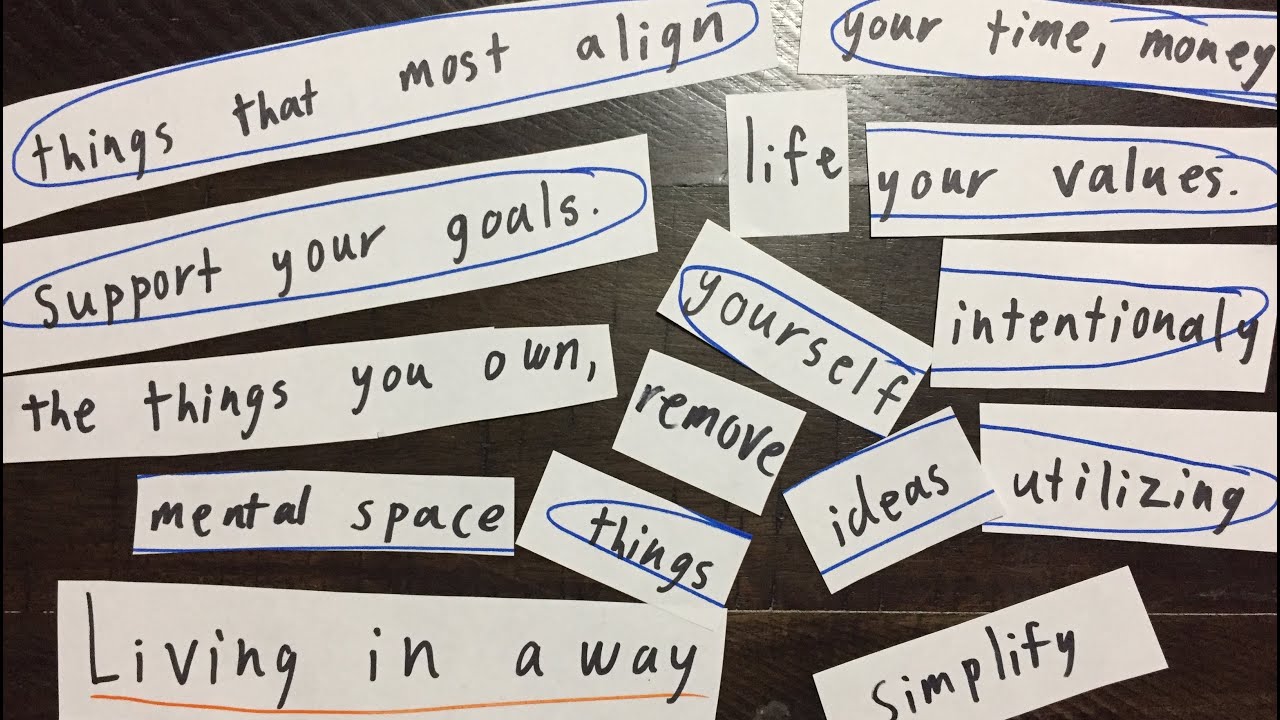 things that most align
your time, money
life
your values.
support your goals.
yourself
intentionaly
the things you own,
remove
ideas
utilizing
mental space
things
Living in a way
simplify